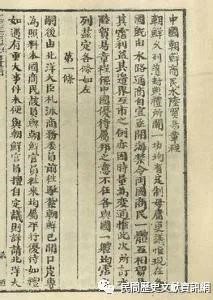 中國朝鮮商民水陸貿易章程
朝鮮久列藩封典禮所關一切均有定制毋庸更議惟現在各
國既由水路通商自宜亟開海禁令兩國商民一體互相貿易
共霑利益其邊界互市之例亦因時量為變通惟此次所訂水
陸貿易章程係中國優待屬邦之意不在各與國一體均霑之
列茲定各條如左
第一條
嗣後由北洋大臣札派商務委員前往駐紮朝鮮已開口岸專
為照料本國商民該員與朝鮮官員往來均屬平行優待如禮
如遇有重大事件未便與朝鮮官員擅自定議則詳請北洋大
民間歷史文獻資訊網